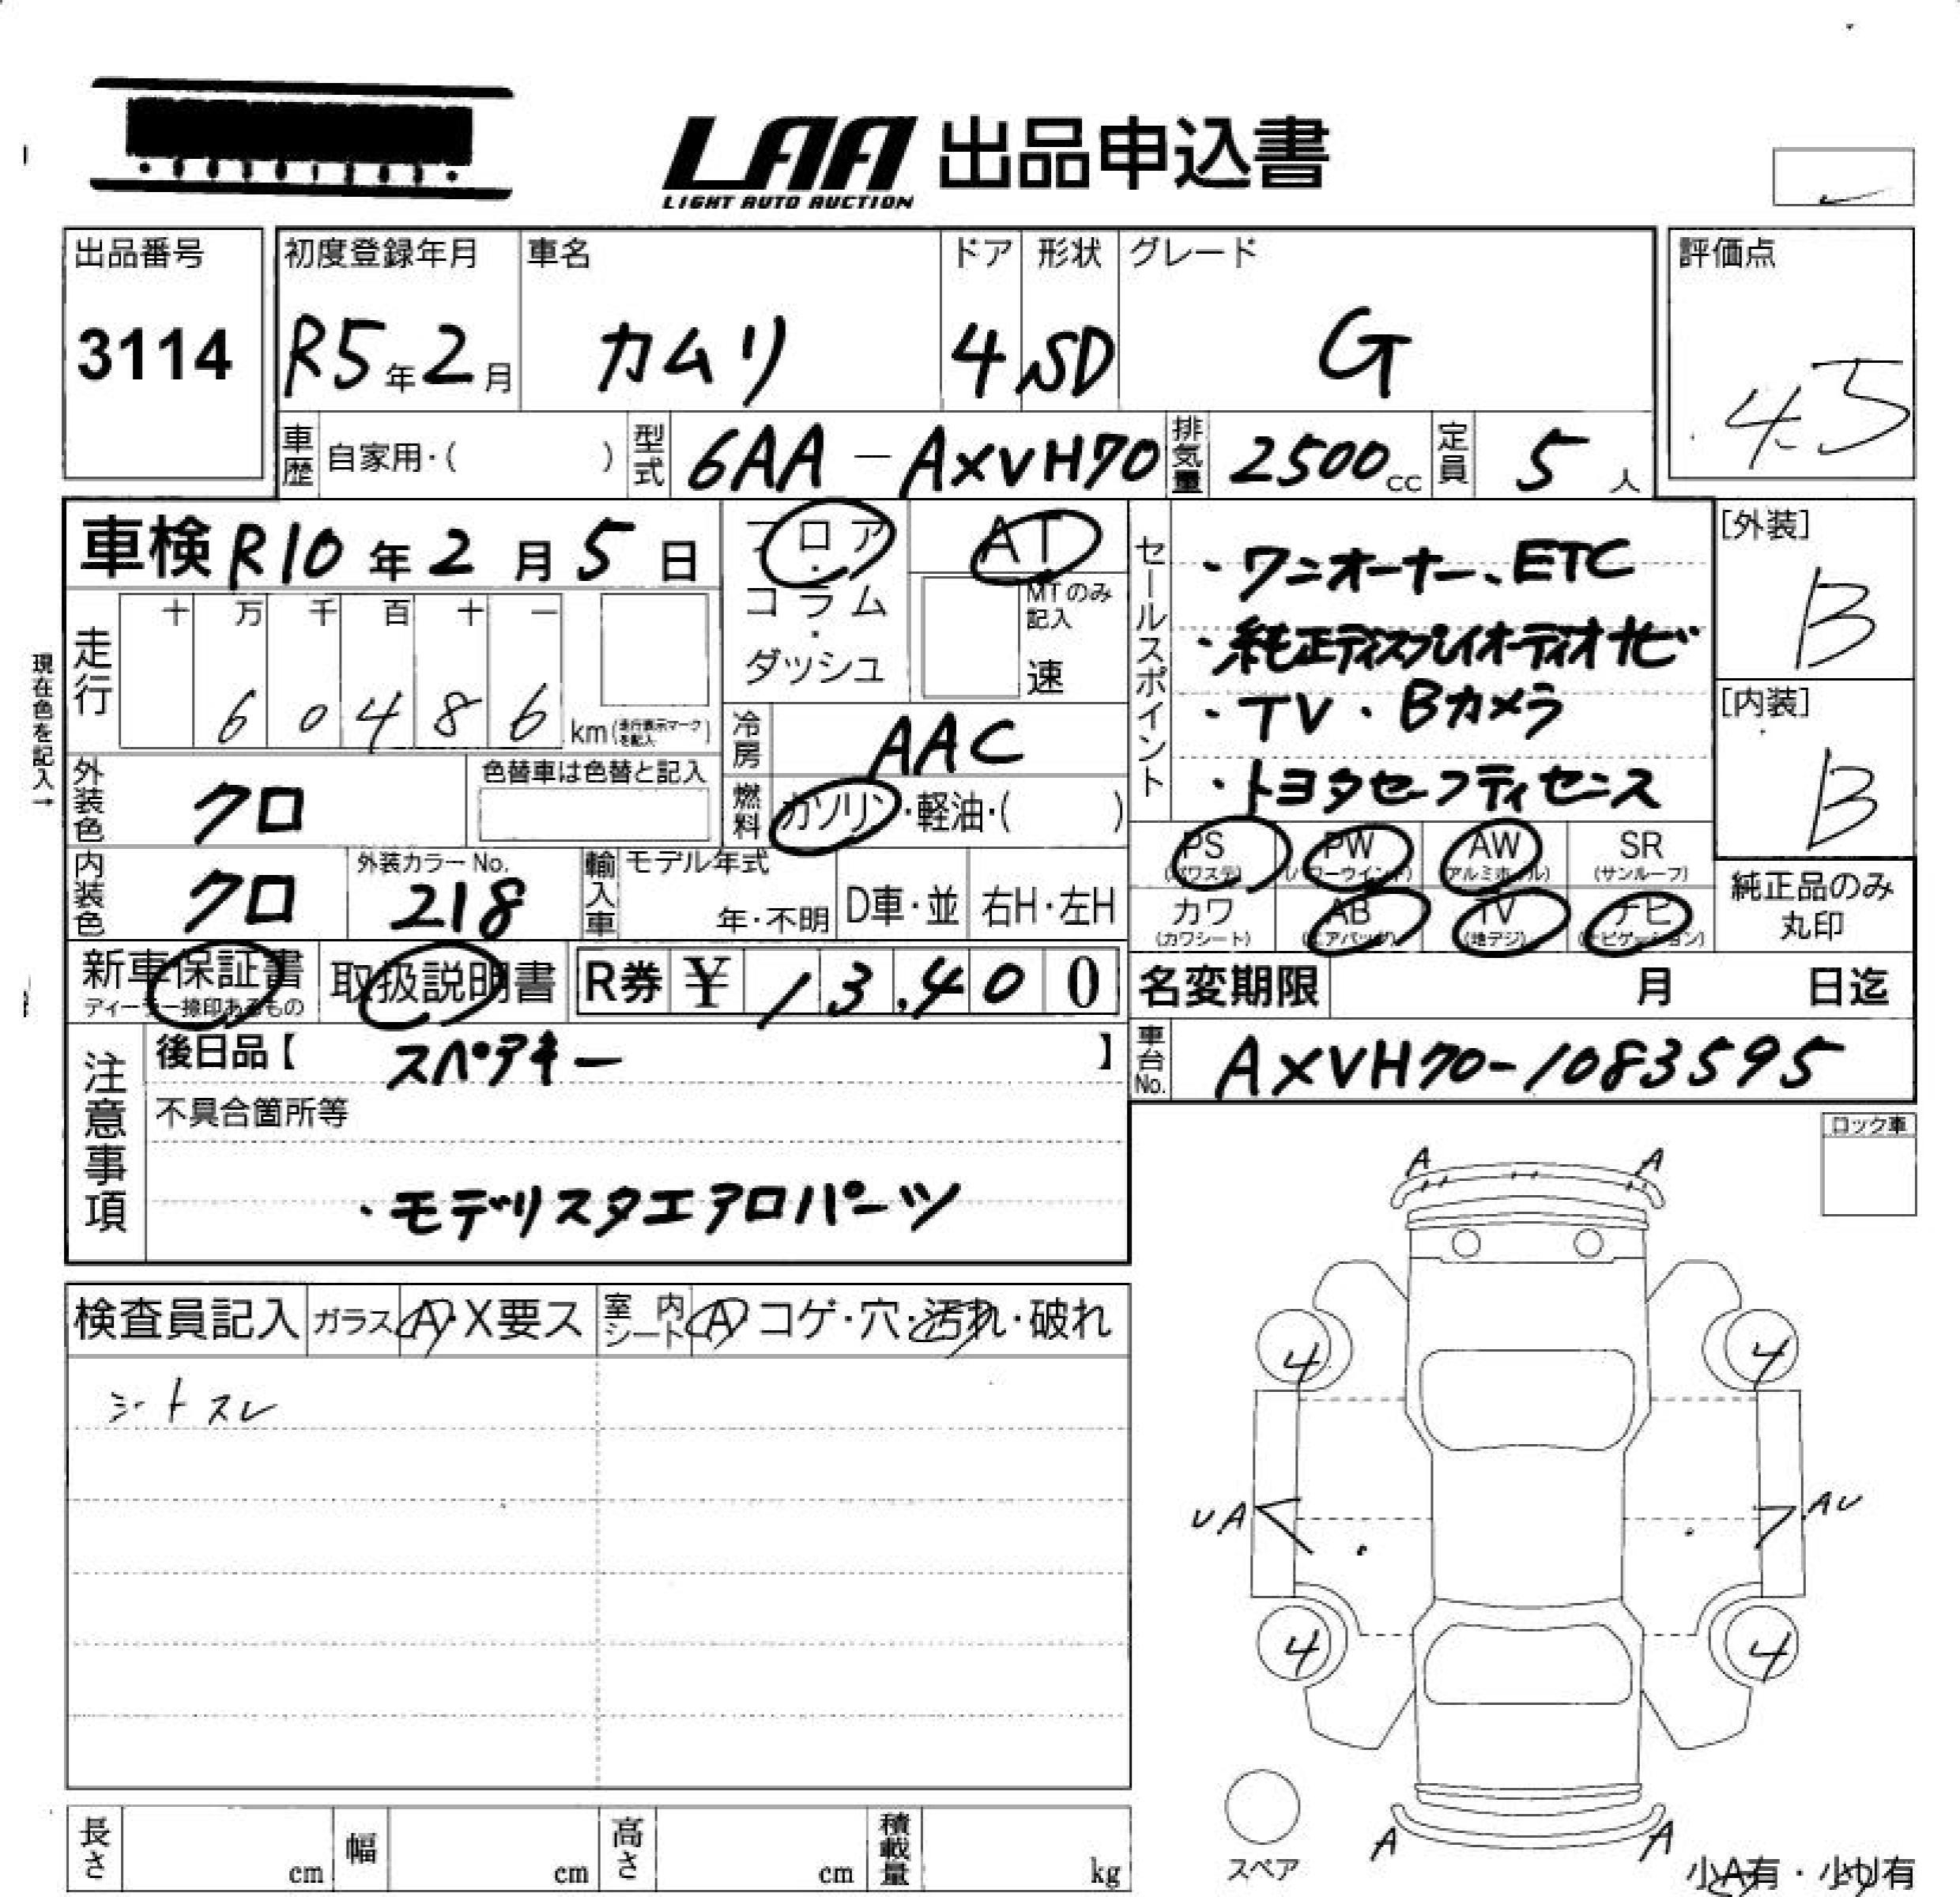 LAA 出品申込書
LIGHT AUTO AUCTION
出品番号
3114
初度登録年月 車名 ドア 形状 グレード
R5年2月 カムリ 4 SD G
評価点
4.5
車歴 自家用・( ) 型式 6AA-AXVH70 排気量 2500cc 定員 5人
車検 R10年2月5日
フロア・コラム・ダッシュ
AT
MTのみ記入
速
現在色を記入→
走行
十 万 千 百 十 一
6 0 4 8 6 km(走行表示マークを記入)
外装色 クロ
色替車は色替と記入
冷房 AAC
燃料 ガソリン・軽油・( )
内装色 クロ
外装カラーNo.
218
輸入車 モデル年式
年・不明 D車・並 右H・左H
セールスポイント
・ワンオーナー、ETC
・純正ディスプレイオーディオナビ
・TV・Bカメラ
・トヨタセーフティセンス
[外装]
B
[内装]
B
PS PW AW SR
(パワステ) (パワーウインド) (アルミホイール) (サンルーフ)
カワ AB TV ナビ
(カワシート) (エアバッグ) (地デジ) (ナビゲーション)
純正品のみ
丸印
新車保証書
ディーラー捺印あるもの
取扱説明書
R券 ¥ 13,400
名変期限 月 日迄
注意事項
後日品【 スペアキー 】
車台No. AXVH70-1083595
不具合箇所等
・モデリスタエアロパーツ
ロック車
検査員記入 ガラス A・X要ス 室内シート A コゲ・穴・汚れ・破れ
シートスレ
A A
4 4
UA AU
4 4
A A
スペア
小A有・小U有
長さ cm 幅 cm 高さ cm 積載量 kg